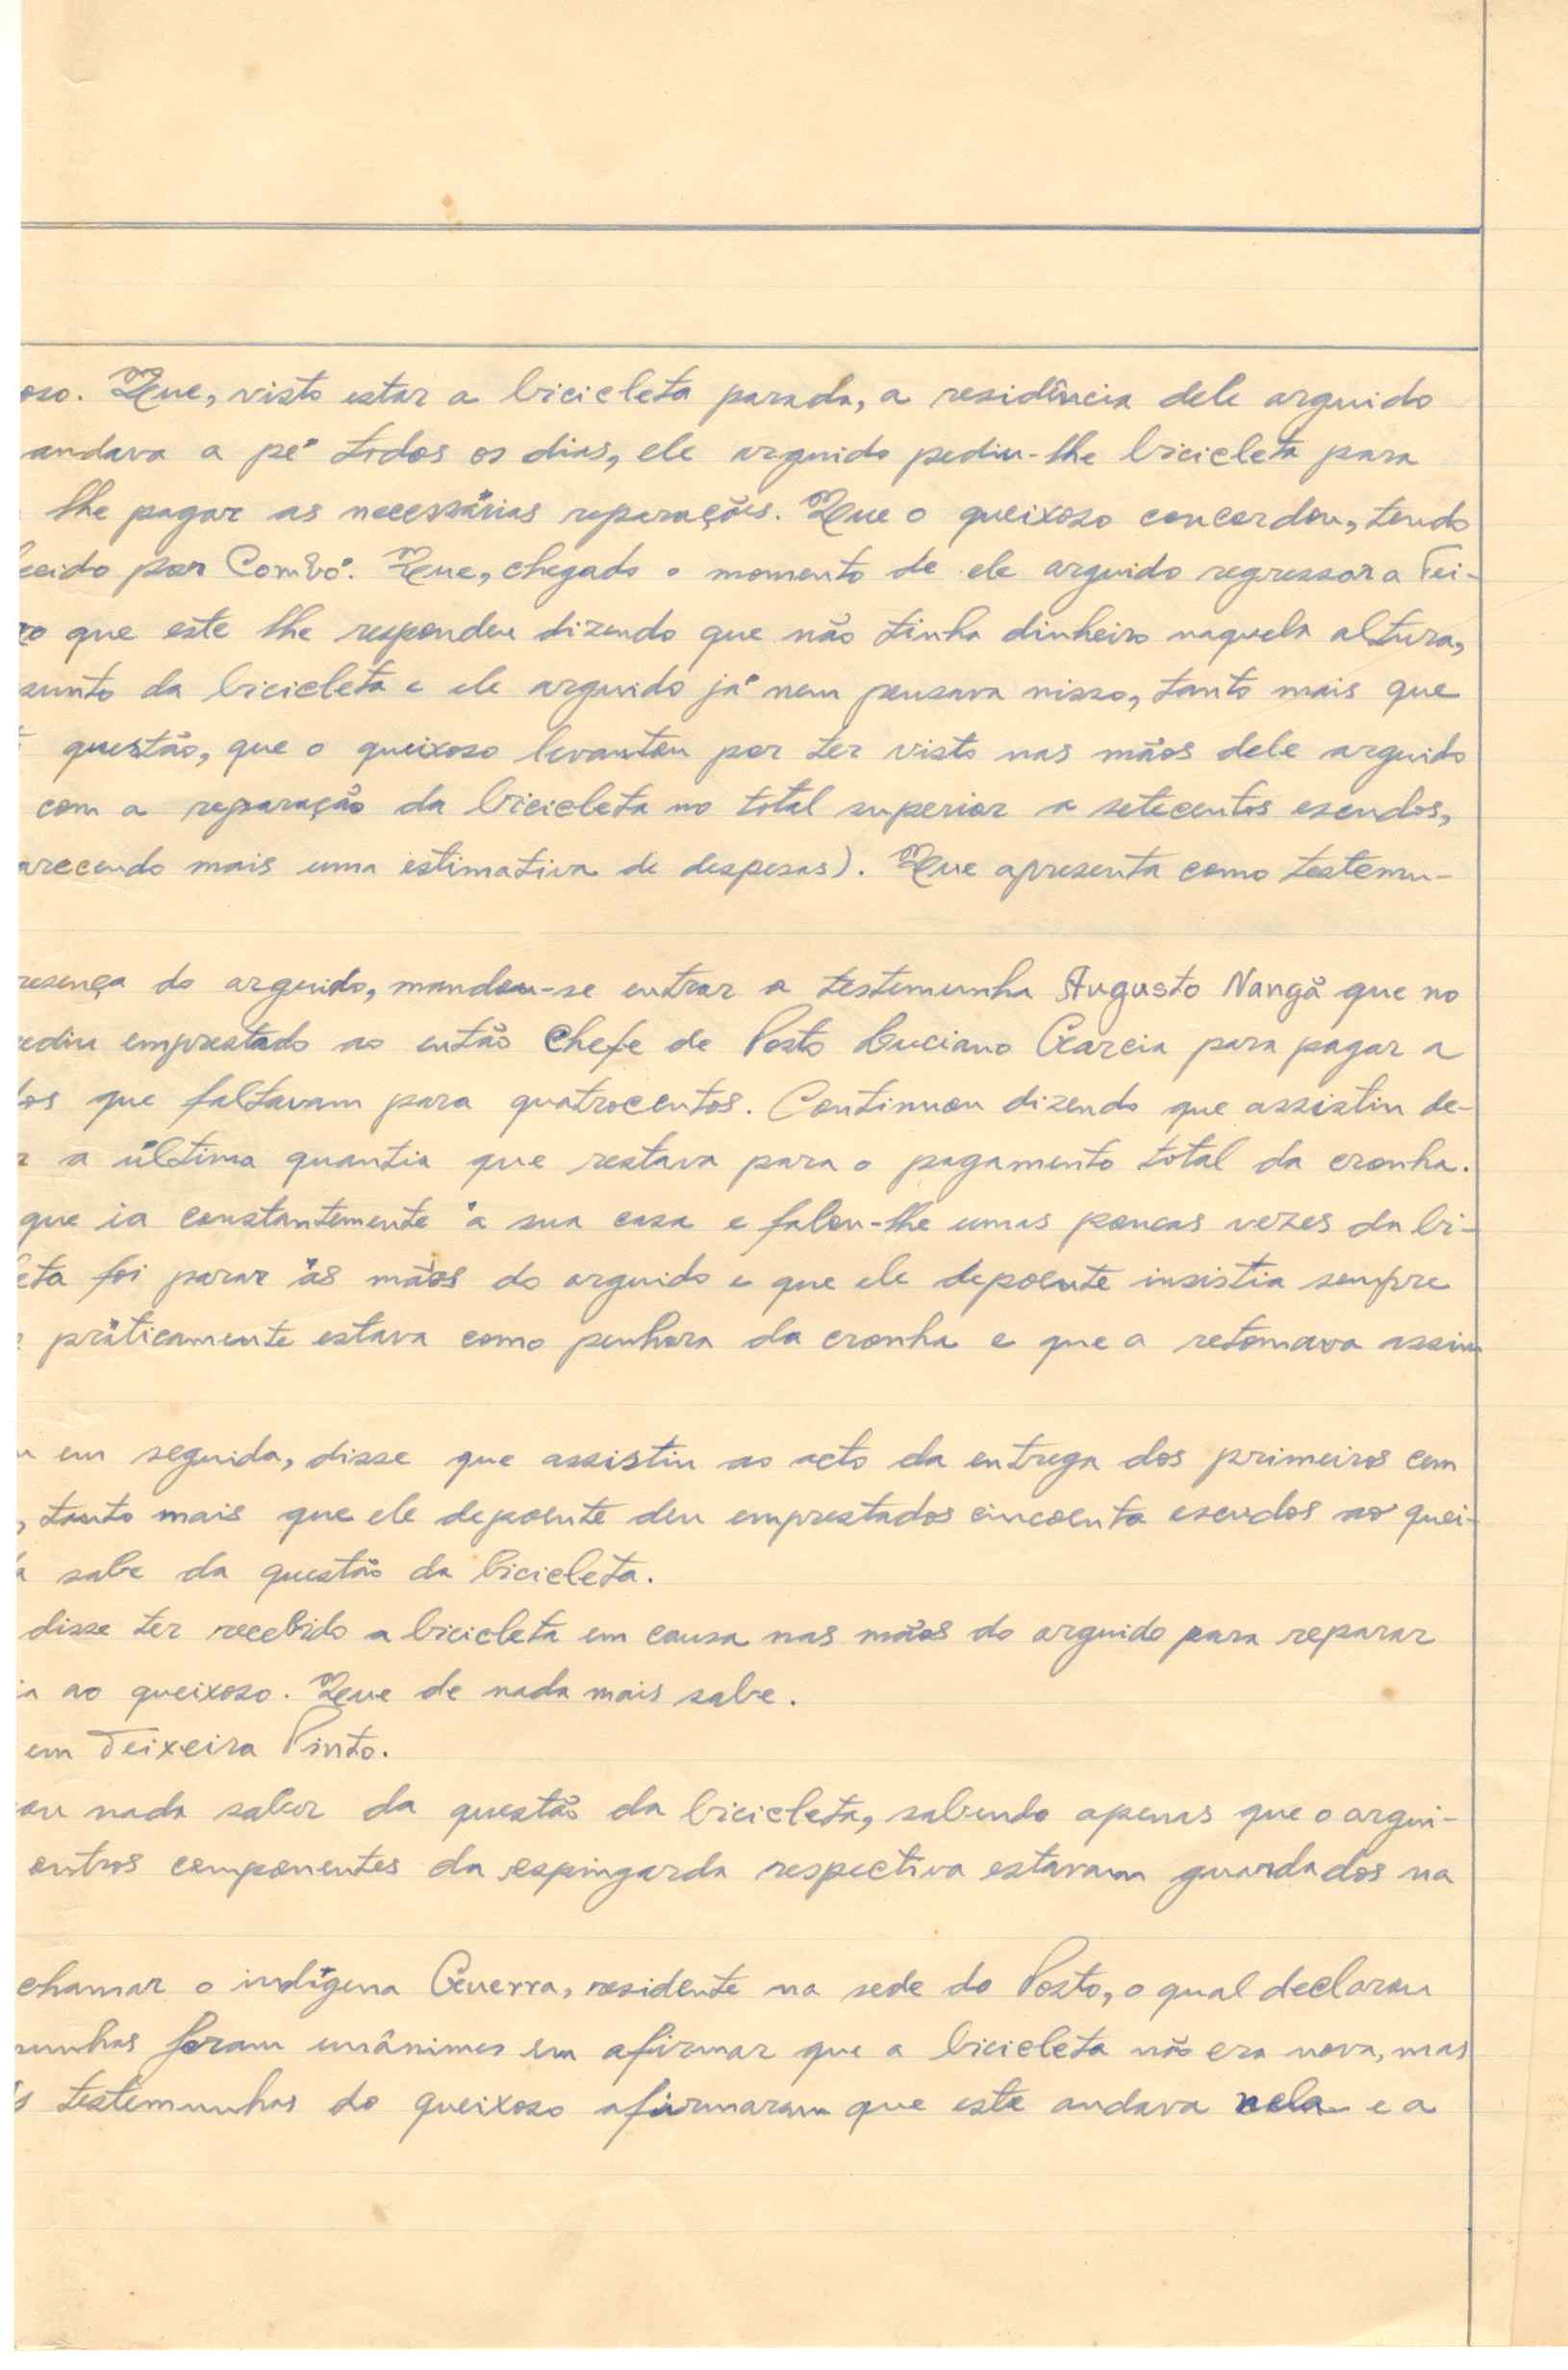 oso. Que, visto estar a bicicleta parada, a residência dele arguido
andava a pé todos os dias, ele arguido pediu-lhe bicicleta para
lhe pagar as necessárias reparações. Que o queixoso concordou, tendo
ecido por Combó. Que, chegado o momento de ele arguido regressar a Tei-
ro que este lhe respondeu dizendo que não tinha dinheiro naquela altura,
sunto da bicicleta e ele arguido já nem pensava nisso, tanto mais que
questão, que o queixoso levantou por ter visto nas mãos dele arguido
com a reparação da bicicleta no total superior a setecentos escudos,
arecendo mais uma estimativa de despesas). Que apresenta como testemu-
resença do arguido, mandou-se entrar a testemunha Augusto Nangã que no
ediu emprestado ao então Chefe de Posto Luciano Garcia para pagar a
dos que faltavam para quatrocentos. Continuou dizendo que assistiu de-
a última quantia que restava para o pagamento total da cronha.
que ia constantemente à sua casa e falou-lhe umas poucas vezes da bi-
eta foi parar às mãos do arguido e que ele depoente insistia sempre
práticamente estava como penhora da cronha e que a retomava assim
em seguida, disse que assistiu ao acto da entrega dos primeiros cem
, tanto mais que ele depoente deu emprestados cincoenta escudos ao quei-
sabe da questão da bicicleta.
disse ter recebido a bicicleta em causa nas mãos do arguido para reparar
ia ao queixoso. Que de nada mais sabe.
em Teixeira Pinto.
ou nada saber da questão da bicicleta, sabendo apenas que o argui-
outros componentes da espingarda respectiva estavam guardados na
chamar o indígena Guerra, residente na sede do Posto, o qual declarou
unhas foram unânimes em afirmar que a bicicleta não era nova, mas
s testemunhas do queixoso afirmaram que este andava nela e a